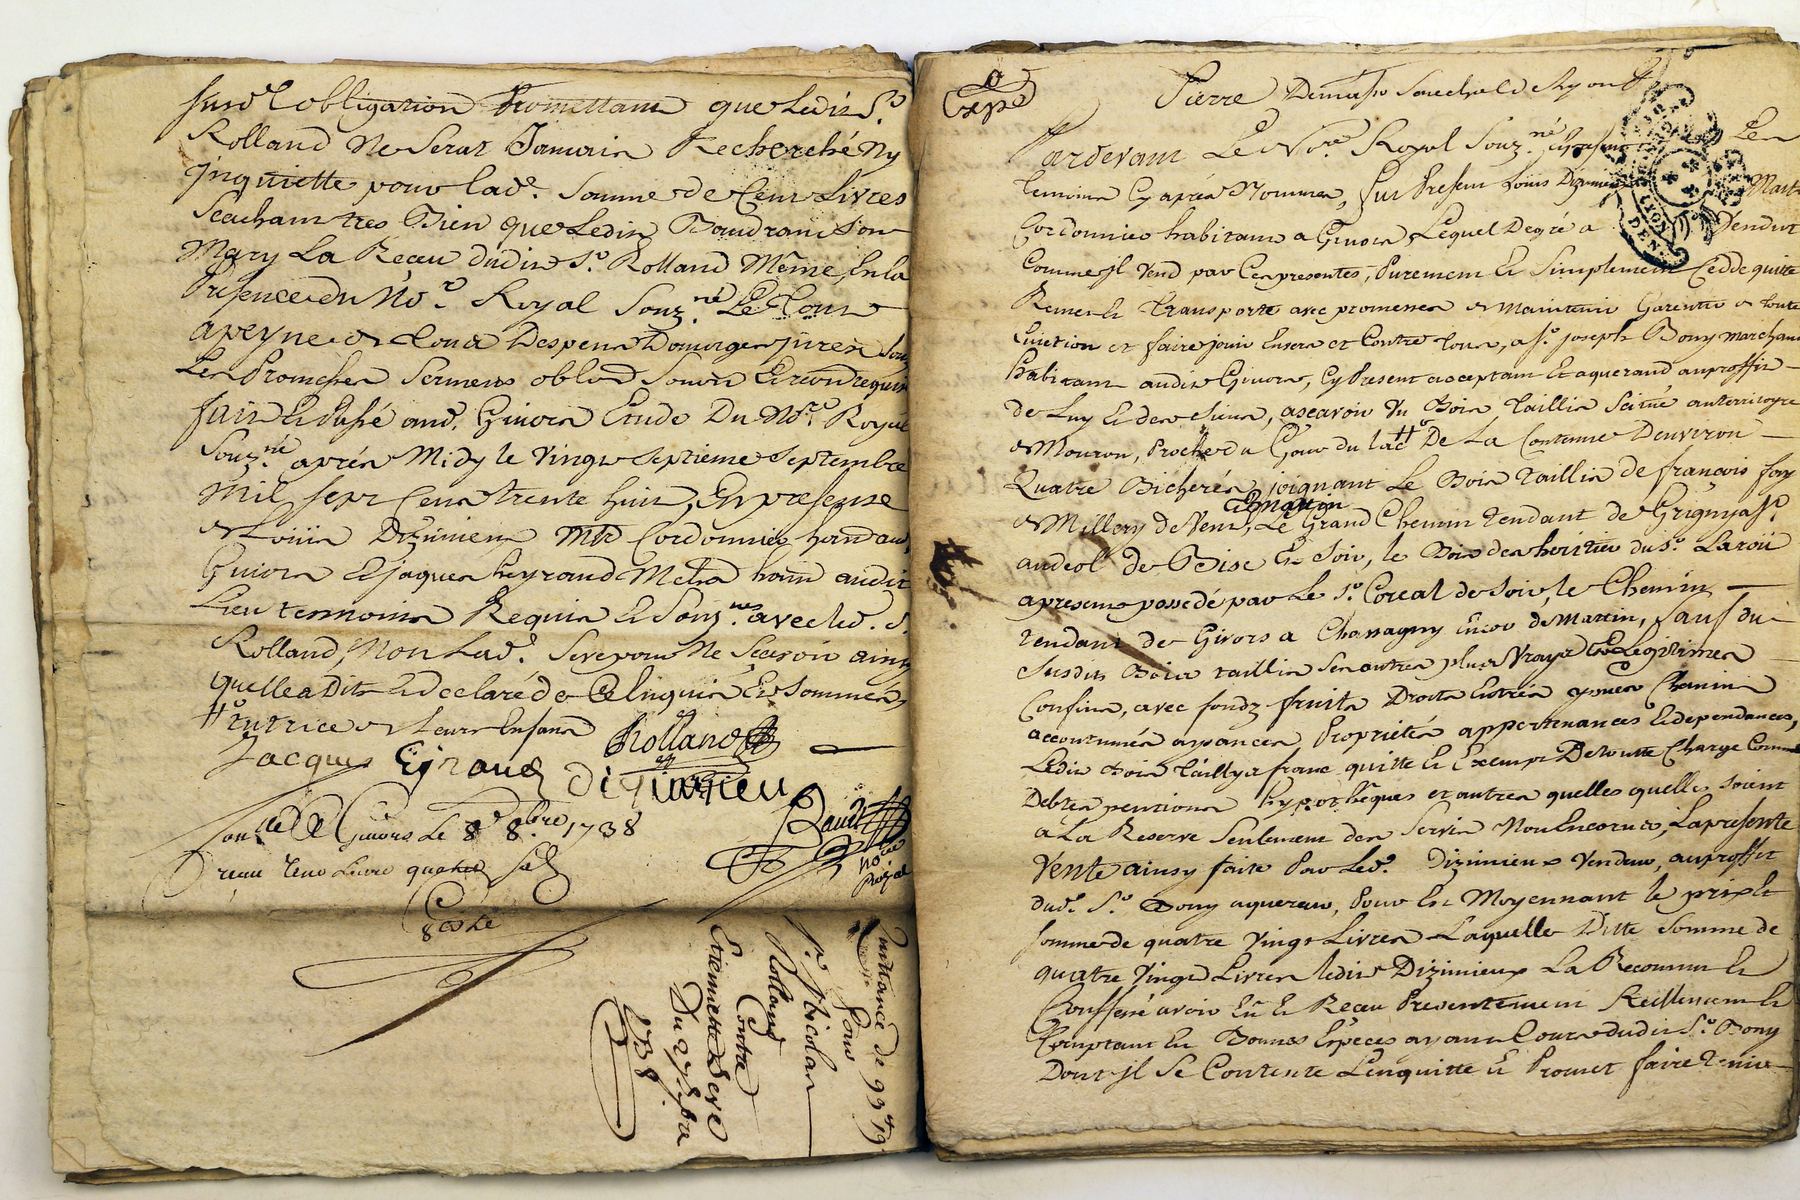 susd.e obligation Promettant que Ledit S.r
Rolland Ne Serat Jamais Recherché Ny
jnquiette pour lad.e Somme de Cent Livres
Scachant tres Bien que Ledit Baudrand Son
Mary La Receu dudit S.r Rolland Même En la
Presence du No.re Royal Souz.né Le tout
a peyne de tous Despens Domages jnterets Sous
Les Promesses Serments obl.ons Soum.ons Et renon. requises
fait Et Passé aud. Givors Etude Du No.re Royal
Souz.né aprés Midy le Vingt Septieme Septembre
Mil Sept Cens trente huit, En presence
de Loüis Dizimieu M.re Cordonnier hab. aud.
Givors Et jaques heyraud M. hab. audit
Lieu temoins Requis Et Souz.nés avec led. S.
Rolland, Non Lad. Seve pour Ne Scavoir ainsy
quelle a Dit Et declaré de Ce Enquise Et Sommée,
tutrice de leurs Enfans
Jacques Eyraud Rolland
dizimieu
Con.lé A Givors Le 8.e 8.bre 1738
receu Une Livre quatre sols
Coste
Baudt
no.re
Royal
Quittance de 93 19
Pour
S.r Nicolas
Rolland
Contre
Etiennette Seve
Du 27 7bre
1738
expé
Pierre Demasso Senechal de Lyon
LYON
DEN
Pardevant Le No.re Royal Souz.né Et Les
temoins Cy aprés Nommés, fut Present Loüis Dizimieu Maitre
Cordonnier habitant a Givors, Lequel De gré a Vendu
Comme jl Vend par Ces presentes, Purement Et Simplement Cedde quitte
Remet Et transporte avec promesses de Maintenir Garentir de toute
Eviction et faire jouir Envers et Contre tous, a S.r joseph Bony Marchand
habitant audit Givors, Cy Present acceptant Et aquerand au proffit
de Luy Et des Siens, ascavoir Un Bois Taillis Scitué au territoyre
de Mouron, Proche du Gour du lac De La Contenue Denviron
Quatre Bicherés, joignant Le Bois Taillis de francois
de Millery de Vent, Le Grand Chemin tendant de Grigny a S.t
de matin
andeol de Bise Et Soir, le Bois des heritiers du S.r Laroü
a present possedé par Le S.r Coreal de Soir, le Chemin
tendant de Givors a Chassagny Encor de Mattin, Sauf du
Susdit Bois taillis Ses autres plus Vrays Et Legitimes
Confins, avec fondz fruits Droits Entrées yssues Chemins
accoutumés aysances Proprietés appertenances Et dependances,
Ledit Bois Taillys franc quitte Et Exempt De toutte Charge Comme
Debtes pentions hypothêques et autres quelles quelles soient
a La Reserve Seulement des Servis Non Encorus, La presente
Vente ainsy faite Par Led. Dizimieux Vendeur, au proffit
dud. S.r Bony aquereur, Pour Et Moyennant le prix Et
Somme de quatre Vingt Livres Laquelle Ditte Somme de
quatre Vingt Livres ledit Dizimieux La Reconnu Et
Confessé avoir Eü Et Receu Presentement Réellement Et
Comptant En Bonnes Espéces ayant Cours dudit S.r Bony
Dont jl Se Contente Lenquitte Et Promet faire tenir